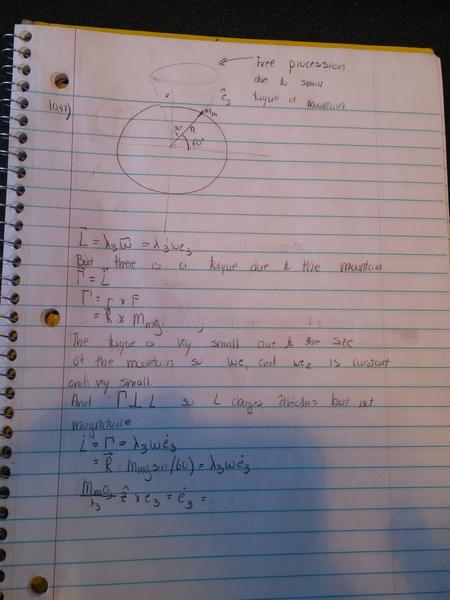 Free precession
due to small
torque of mountain
10.47)
ê₃
m_m
30°
R
60°
L⃗ = λ₃ω⃗ = λ₃ωe₃
But there is a torque due to the mountain
Γ⃗ = L̇⃗
Γ = r × F
= R⃗ × M_mg
The torque is very small due to the size
of the mountain so ω₁ and ω₂ is constant
and very small.
And Γ ⊥ L so L changes directions but not
magnitude
L̇ = Γ = λ₃ωė₃
= R⃗ M_mg sin(60) = λ₃ωė₃
M_mg/λ₃ ẑ × e₃ = ė₃ =